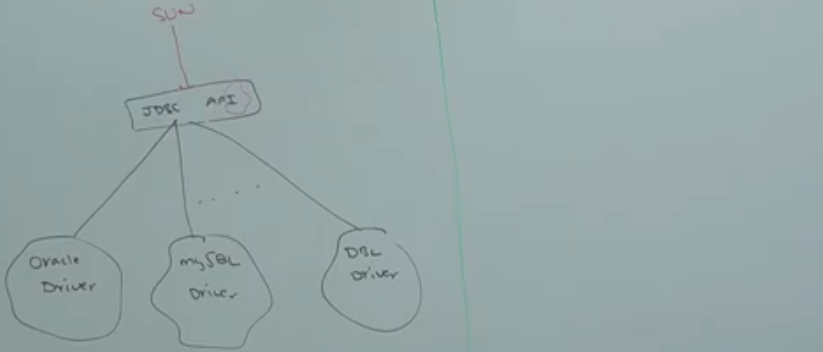 SUN
JDBC API
Oracle
Driver
mySQL
Driver
DBL
Driver